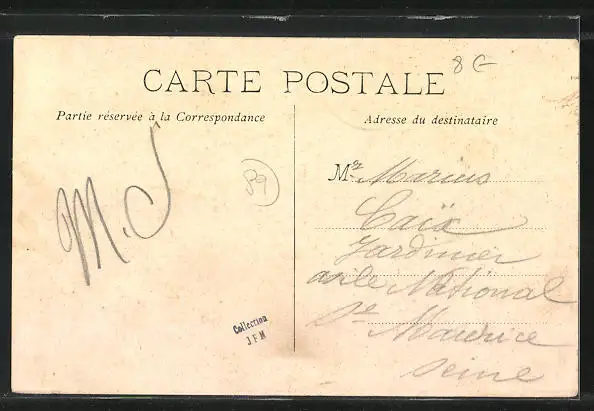 8 G
CARTE POSTALE
Partie réservée à la Correspondance
Adresse du destinataire
M. J
89
Collection
J F M
Mr Marius
Caïx
Jardinier
asile National
St Maurice
Seine